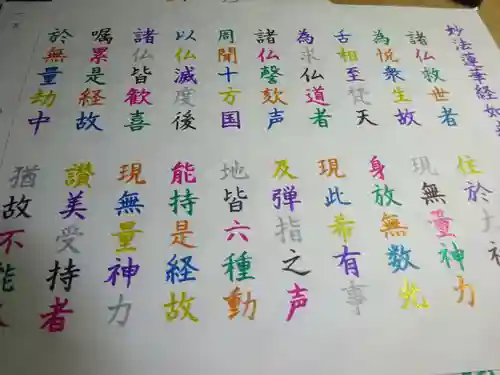 妙法蓮華経如
諸仏救世者 住於大神
為悦衆生故 現無量神力
舌相至梵天 身放無数光
為求仏道者 現此希有事
諸仏謦欬声 及弾指之声
周聞十方国 地皆六種動
以仏滅度後 能持是経故
諸仏皆歓喜 現無量神力
嘱累是経故 讃美受持者
於無量劫中 猶故不能